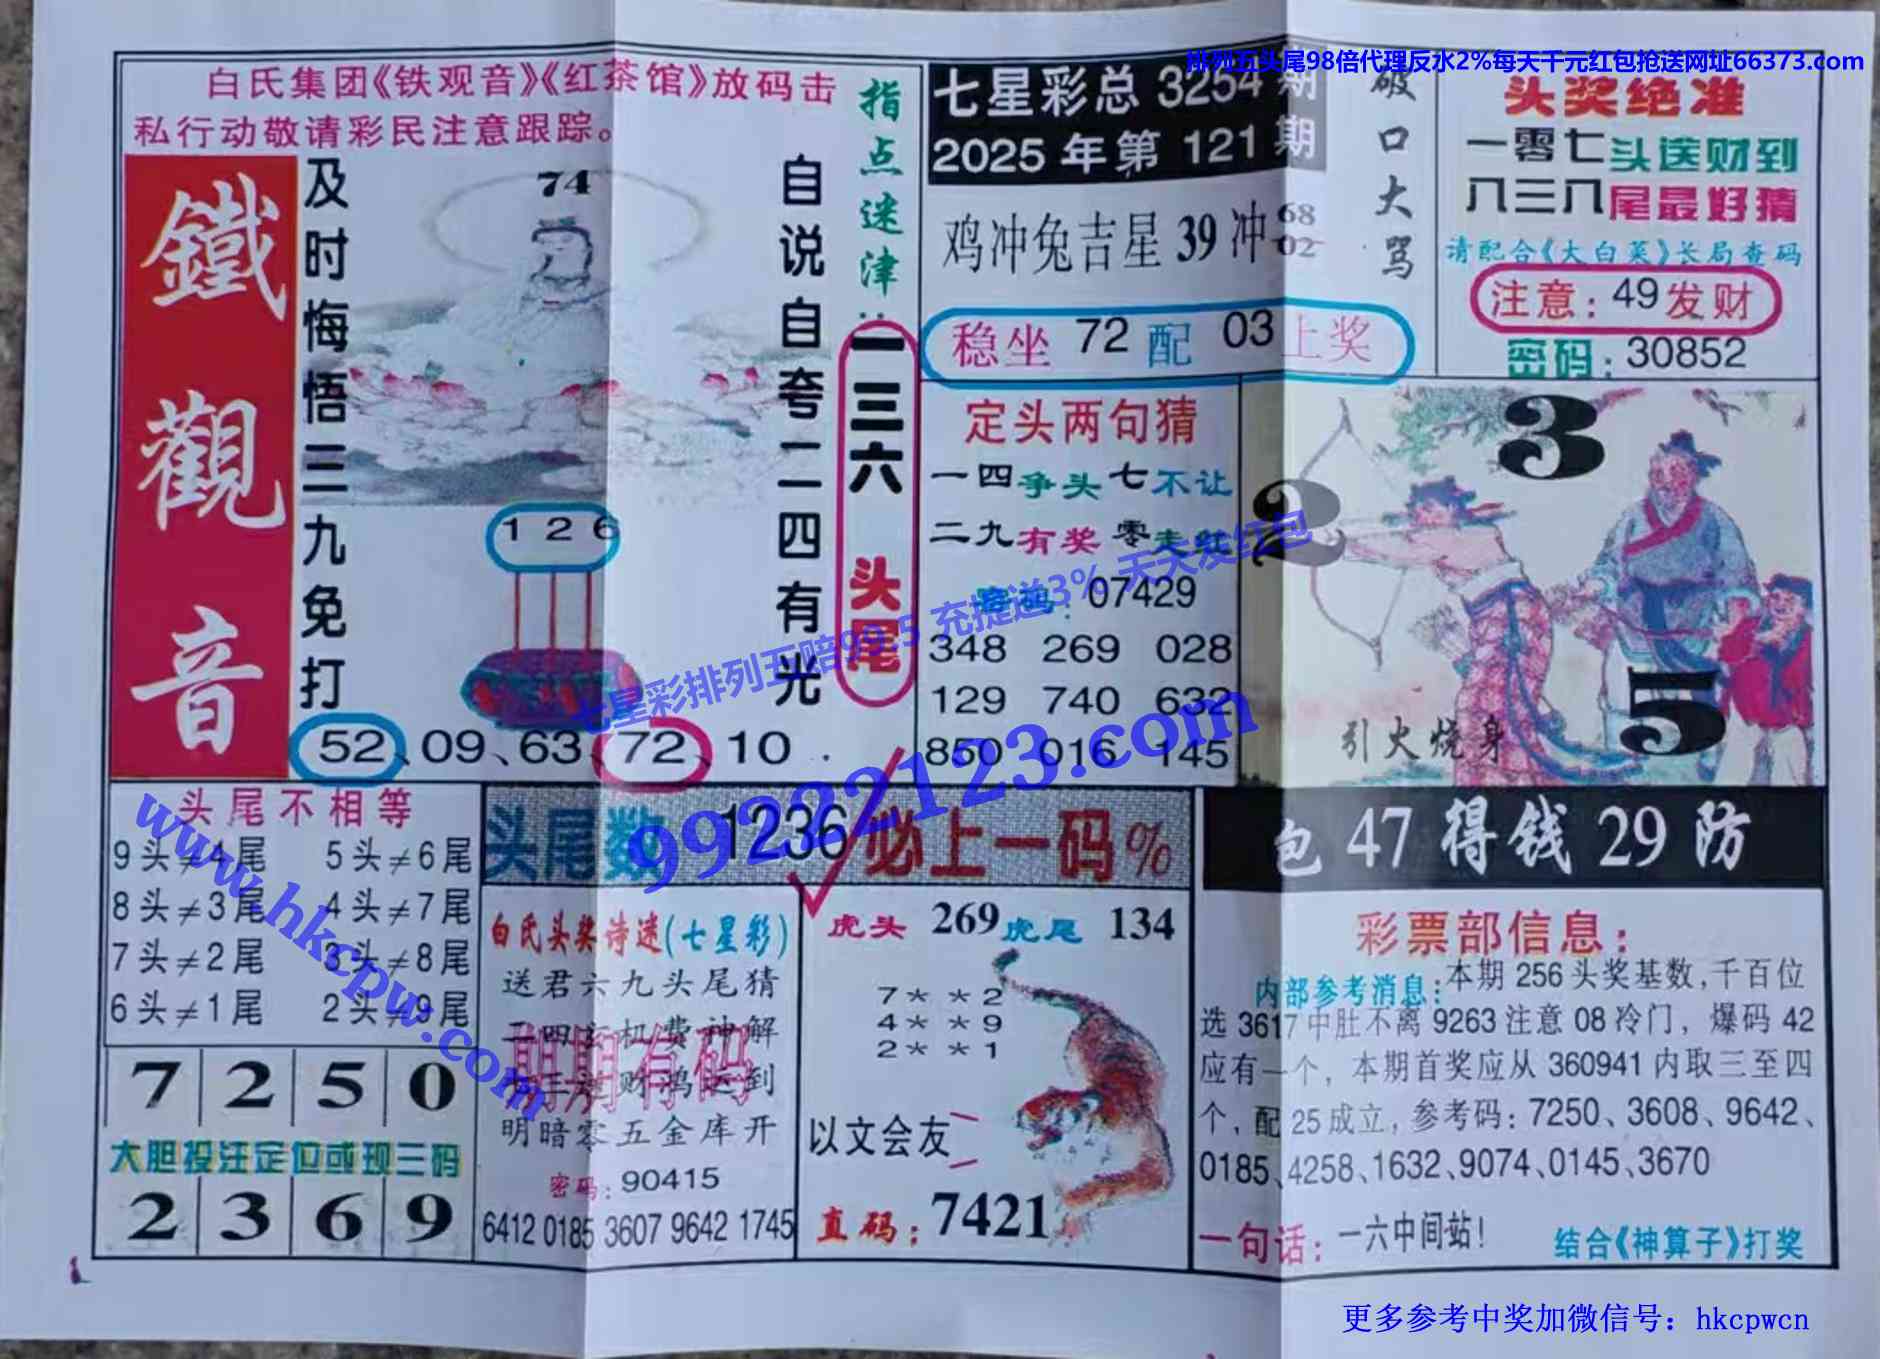 排列五头尾98倍代理反水2%每天千元红包抢送网址66373.com
白氏集团《铁观音》《红茶馆》放码击
私行动敬请彩民注意跟踪。
鐵觀音
及时悔悟三九免打
74
自说自夸二四有光
126
52、09、63、72、10.
指点迷津：一三六 头尾
七星彩总 3254 期
2025 年第 121 期
鸡冲兔吉星 39 冲 68 02
稳坐 72 配 03 上奖
破口大骂
头奖绝准
一零七头送财到
八三八尾最好猜
请配合《大白菜》长局查码
注意：49发财
密码：30852
定头两句猜
一四争头七不让
二九有奖零走红
密码：07429
348 269 028
129 740 632
850 016 145
2
3
5
引火烧身
七星彩排列五赔99.5 充提送3% 天天发红包
99222123.com
www.hkcpw.com
头尾不相等
9头≠4尾 5头≠6尾
8头≠3尾 4头≠7尾
7头≠2尾 3头≠8尾
6头≠1尾 2头≠9尾
7 2 5 0
大胆投注定位或现三码
2 3 6 9
头尾数 1236 必上一码%
白氏头奖诗迷(七星彩)
送君六九头尾猜
二四玄机费神解
三 财鸿运到
明暗零五金库开
期期有码
密码：90415
6412 0185 3607 9642 1745
虎头 269 虎尾 134
7＊ ＊2
4＊ ＊9
2＊ ＊1
以文会友
直码：7421
包 47 得钱 29 防
彩票部信息：
内部参考消息：本期 256 头奖基数,千百位
选 3617 中肚不离 9263 注意 08 冷门，爆码 42
应有一个，本期首奖应从 360941 内取三至四
个，配 25 成立,参考码：7250、3608、9642、
0185、4258、1632、9074、0145、3670
一句话：一六中间站！
结合《神算子》打奖
更多参考中奖加微信号：hkcpwcn